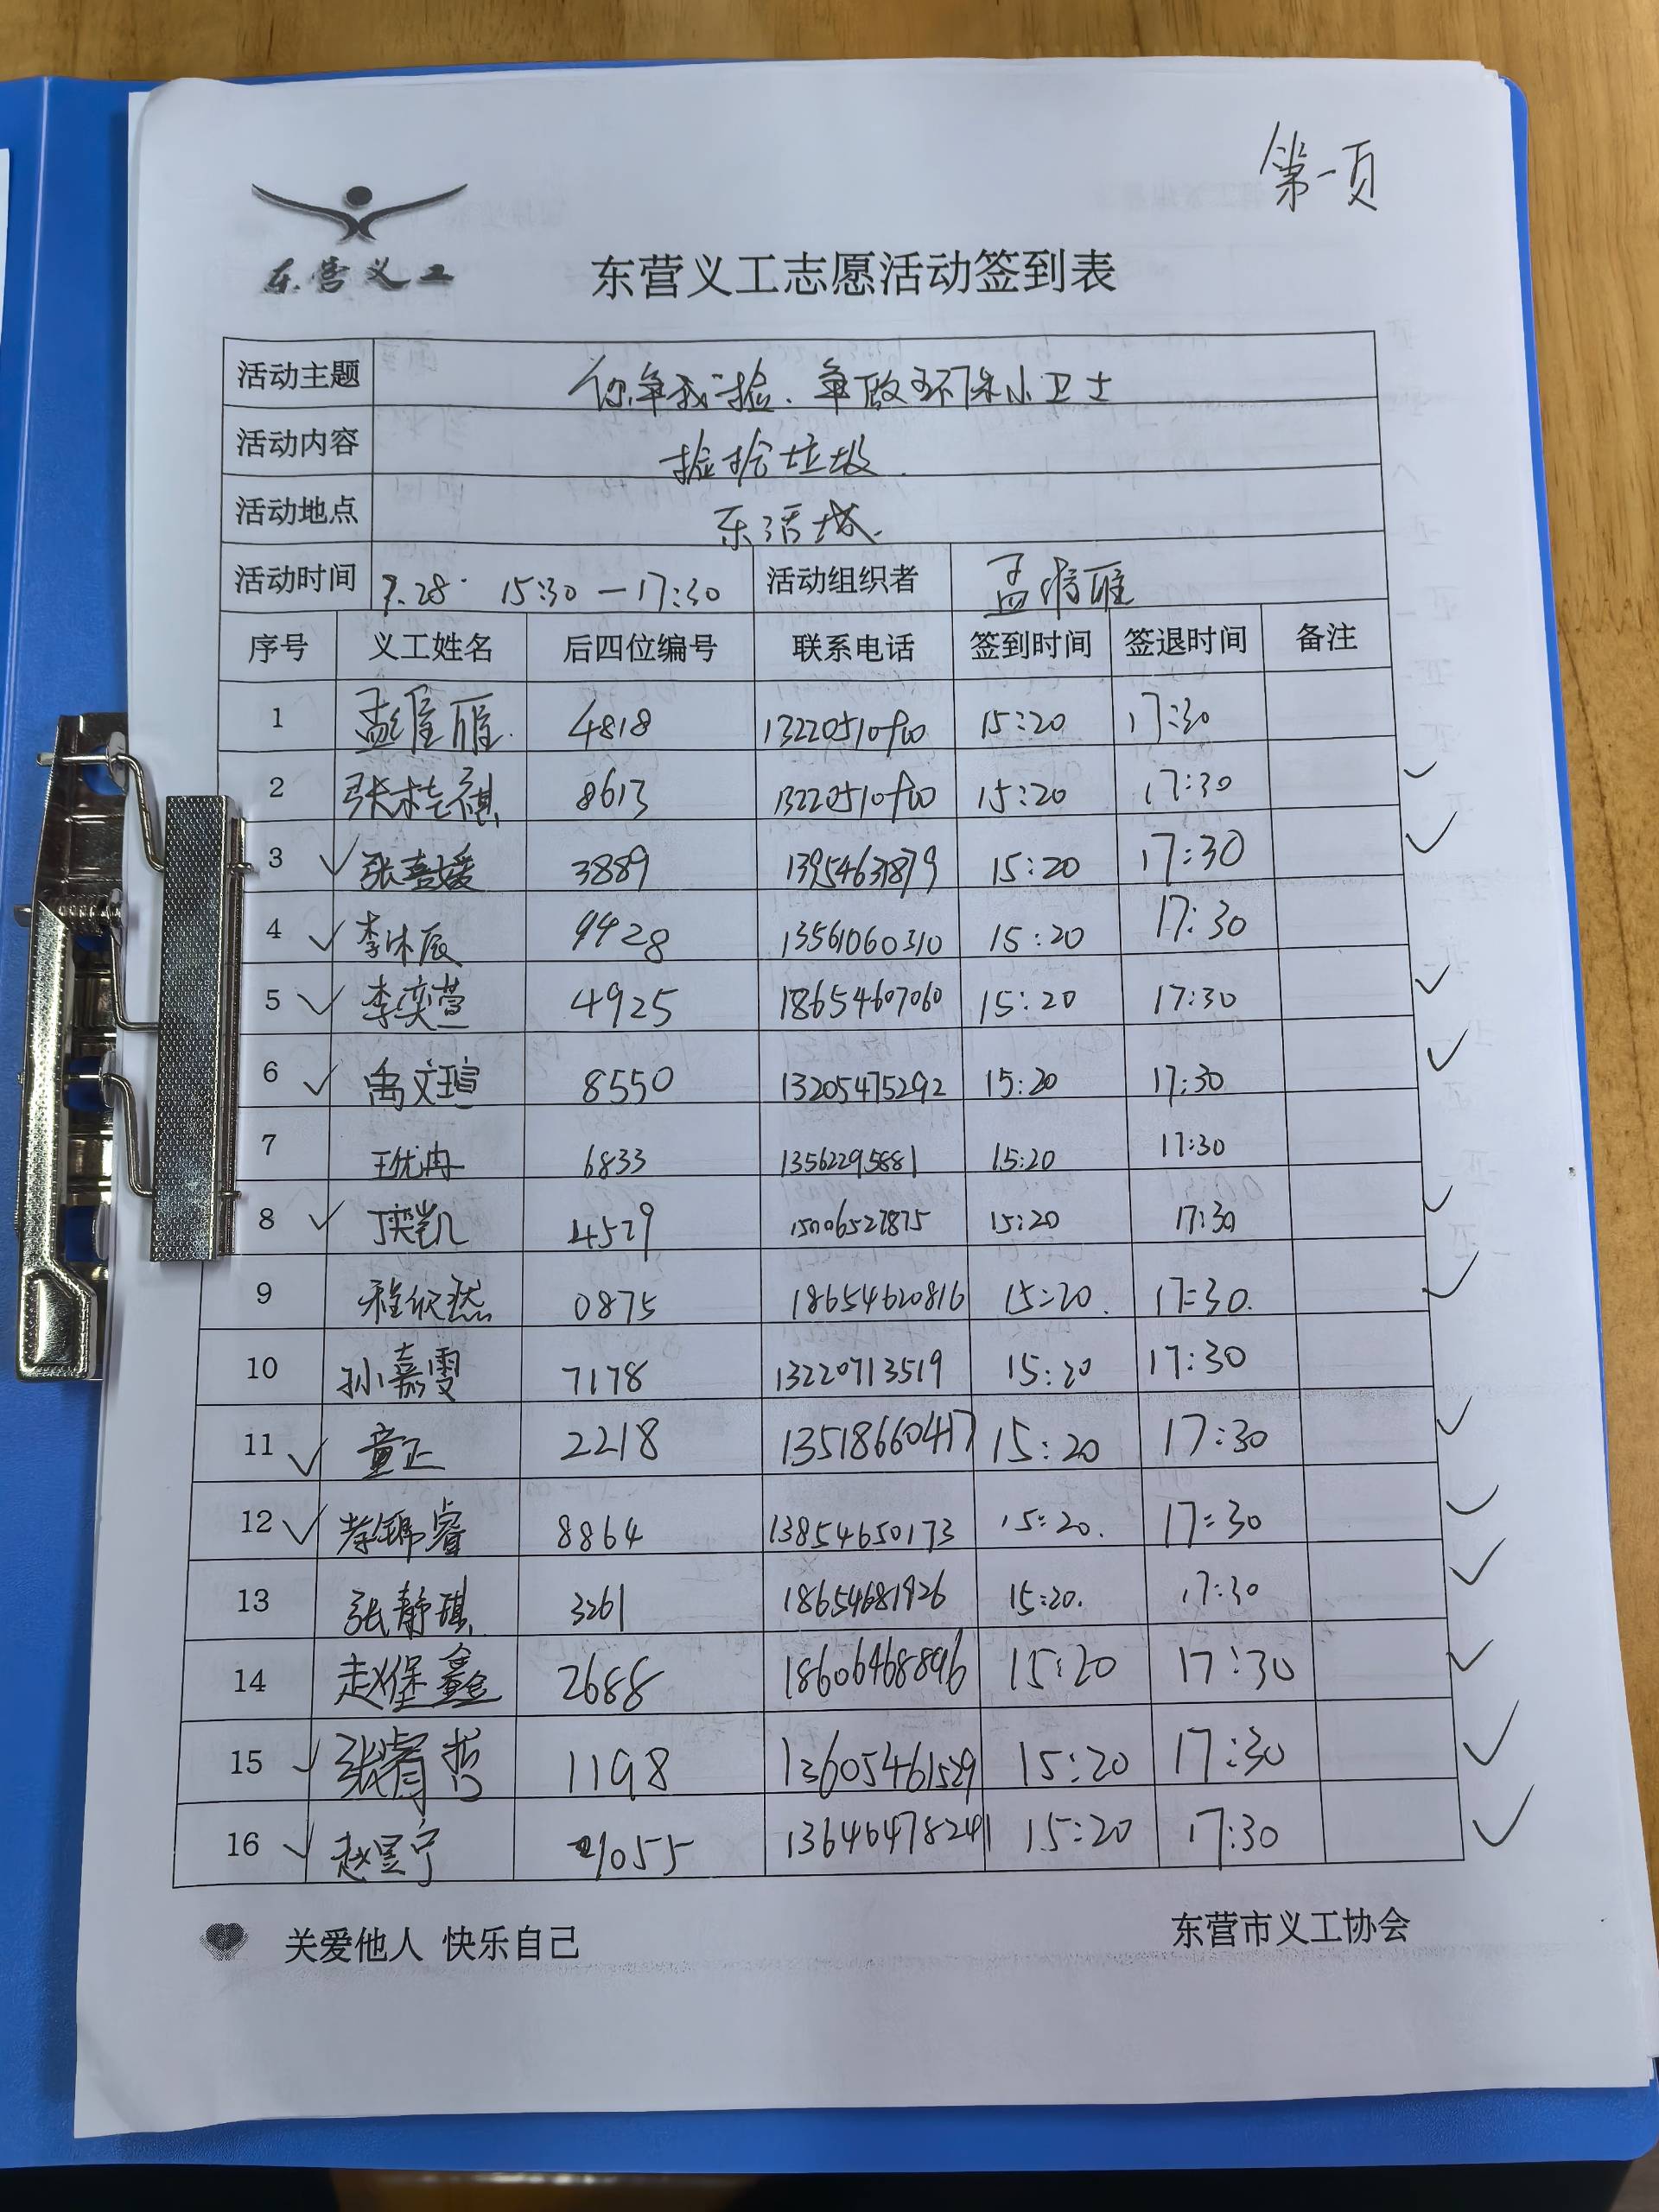 第一页
东营义工
东营义工志愿活动签到表
活动主题 你争我捡、争做环保小卫士
活动内容 捡拾垃圾
活动地点 东活城
活动时间 7.28 15:30—17:30 活动组织者 孟
序号 义工姓名 后四位编号 联系电话 签到时间 签退时间 备注
1 孟 雁 4818 15:20 17:30
2 张 祺 8613 15:20 17:30
3 张喜媛 3889 13954631879 15:20 17:30
4 李沐辰 9928 13561060310 15:20 17:30
5 李奕萱 4925 18654607060 15:20 17:30
6 禹文瑄 8550 13205475292 15:20 17:30
7 王优冉 6833 13562295881 15:20 17:30
8 丁奕凯 4579 15006527875 15:20 17:30
9 程 然 0875 18654620816 15:20 17:30
10 孙嘉雯 7178 13220713519 15:20 17:30
11 童正 2218 13518660417 15:20 17:30
12 锦睿 8864 13854650173 15:20 17:30
13 张静琪 3261 18654681926 15:20 17:30
14 赵堡鑫 2688 18606468896 15:20 17:30
15 张睿哲 1198 13605461529 15:20 17:30
16 赵昱宁 1055 13646478241 15:20 17:30
关爱他人 快乐自己 东营市义工协会